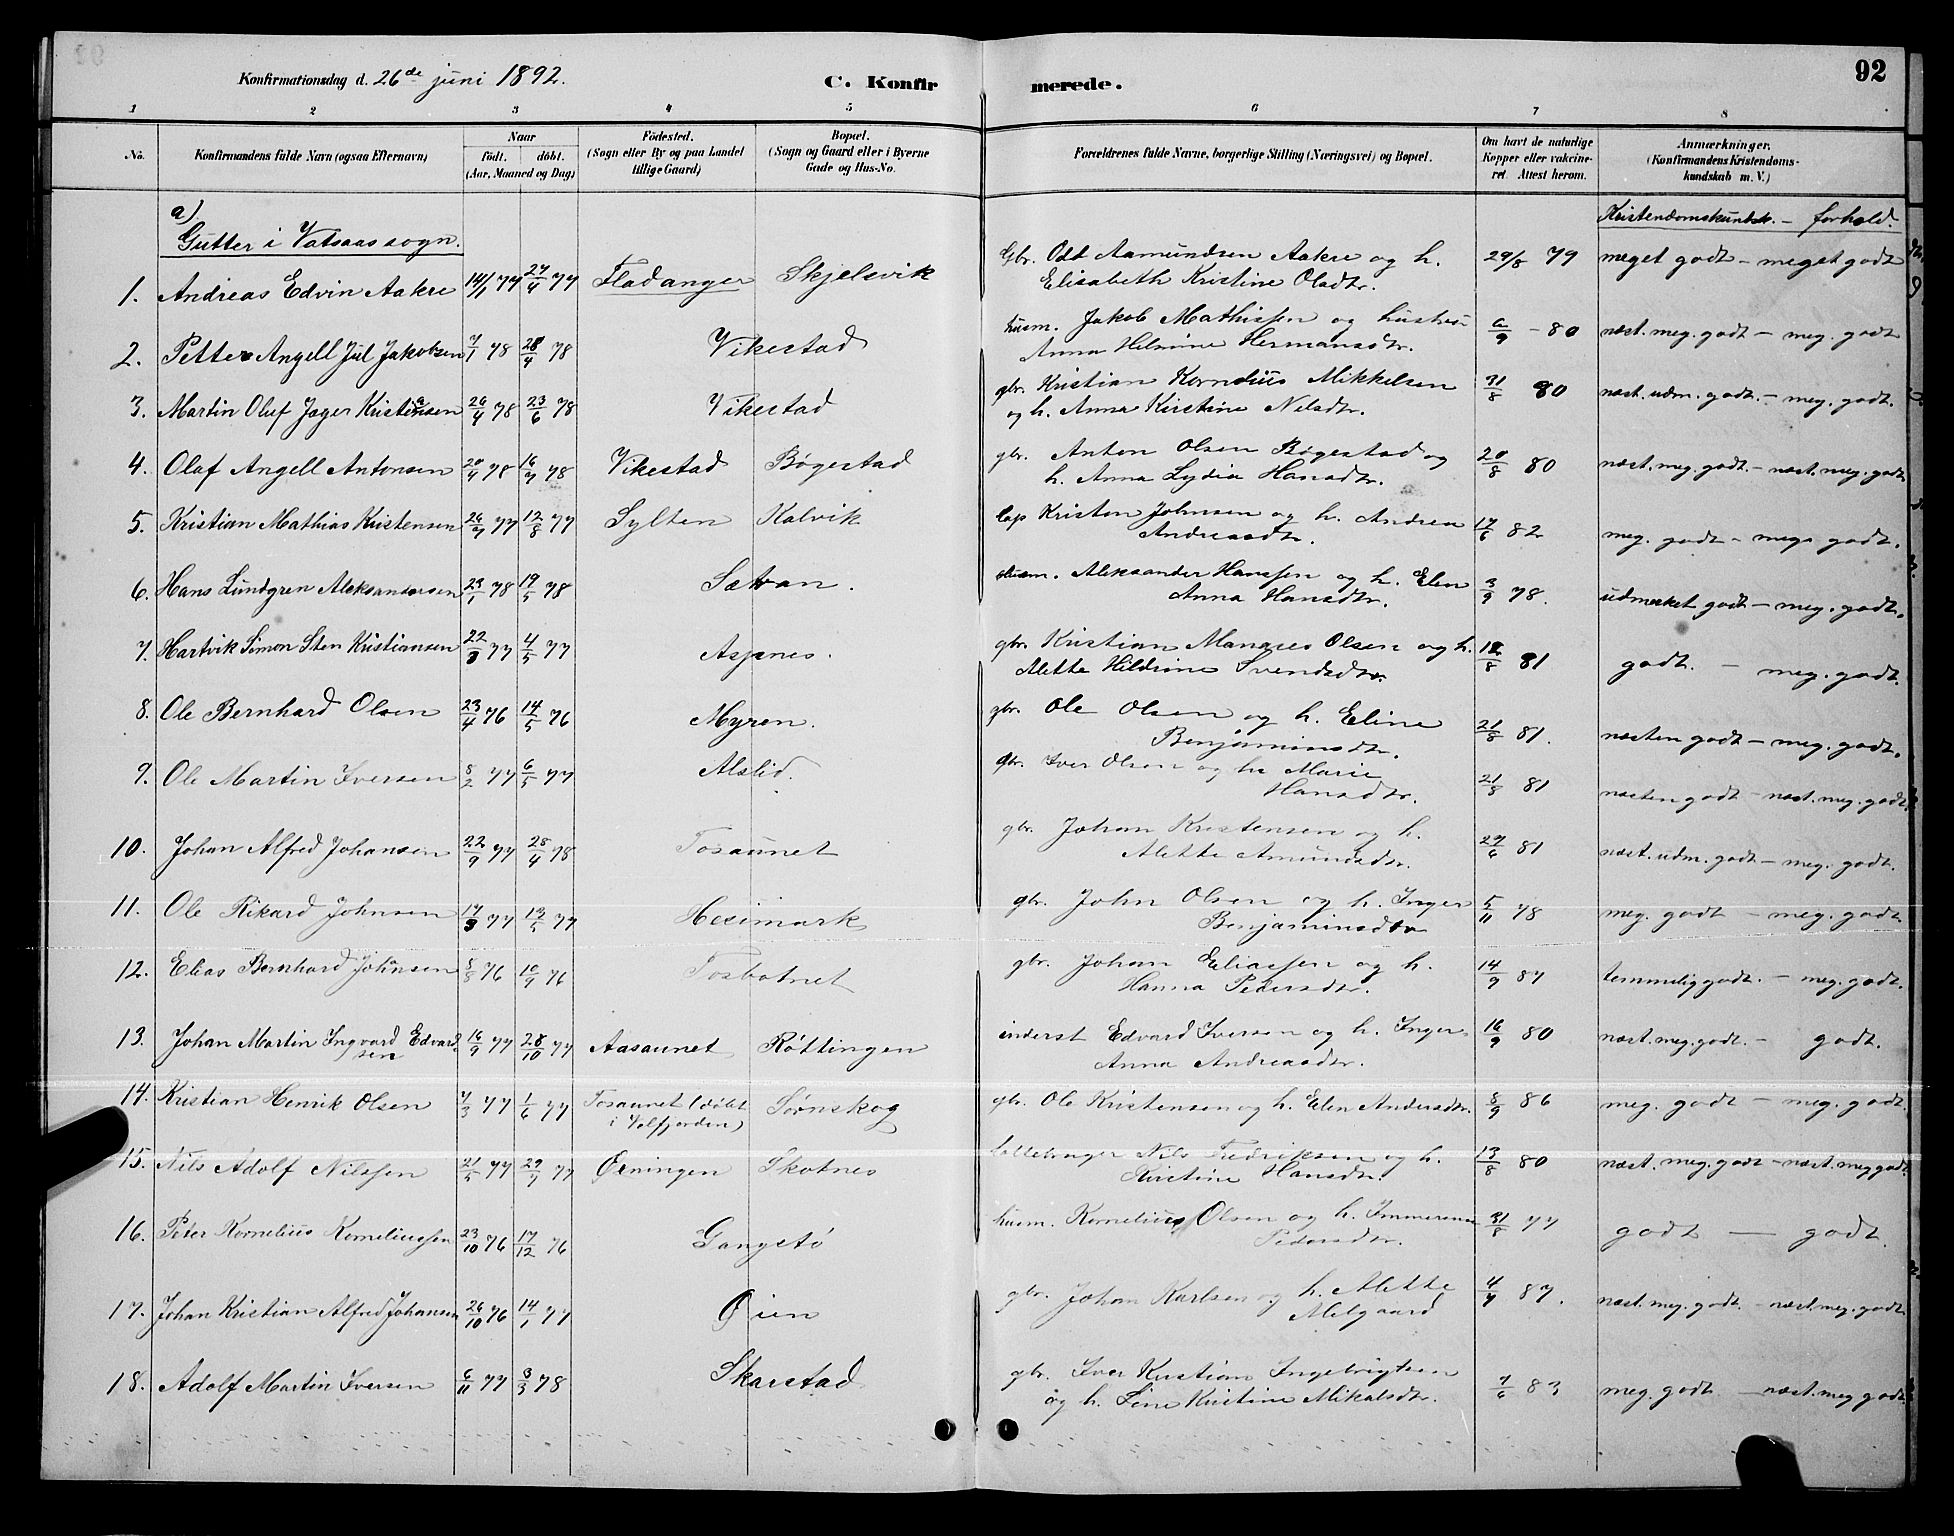 92
Konfirmationsdag d. 26de juni 1892.
C. Konfirmerede.
1 2 3 4 5 6 7 8
No. Konfirmandens fulde Navn (ogsaa Efternavn) Naar født. døbt. (Aar, Maaned og Dag) Fødested. (Sogn eller By og paa Landet tillige Gaard) Bopæl. (Sogn og Gaard eller i Byerne Gade og Hus-No. Forældrenes fulde Navne, borgerlige Stilling (Næringsvei) og Bopæl. Om havt de naturlige Kopper eller vakcineret. Attest herom. Anmærkninger. (Konfirmandens Kristendomskundskab m. V.)
a)
Gutter i Vatsaas sogn. Kristendomskundsk. – forhold.
1. Andreas Edvin Aakre 14/1 77 27/4 77 Fladanger Skjelsvik Gbr. Odt Aamundsen Aakre og h. 29/8 79 meget godt – meget godt
Elisabeth Kristine Olsdtr.
2. Petter Angell Jul Jakobsen 7/1 78 28/4 78 Vikestad husm. Jakob Mathissen og hustru 6/9 – 80 næst. meg. godt – meg. godt
Anna Helmine Hermansdtr.
3. Martin Oluf Jager Kristiansen 26/4 78 23/6 78 Vikestad gbr. Kristian Kornelius Mikkelsen 31/8 80 næst. udm. godt. – meg. godt.
og h. Anna Kirstine Nilsdtr.
4. Olaf Angell Antonsen 20/4 78 16/7 78 Vikestad Bøgestad gbr. Anton Olsen Bøgestad og 20/8 80 næst. meg. godt. – næst. meg. godt
h. Anna Lydia Hansdtr.
5. Kristian Mathias Kristensen 26/7 77 12/8 77 Sylten Kalvik lap Kristen Johnsen og h. Andrea 17/6 82 meg. godt – meg. godt.
Andreasdtr.
6. Hans Lundgren Aleksandersen 23/1 78 19/5 78 Sætran. husm. Aleksander Hanssen og h. Elen 3/9 78. udmerket godt – meg. godt.
Anna Hansdtr.
7. Hartvik Simon Sten Kristiansen 22/3 77 4/5 77 Aspnes. gbr. Kristian Mangnes Olsen og h. 12/8 81 godt. – meg. godt.
Alette Hildrine Svendsdtr.
8. Ole Bernhard Olsen 23/4 76 14/5 76 Myren. gbr. Ole Olsen og h. Eline 21/8 81. næsten godt – meg. godt.
Benjaminsdtr.
9. Ole Martin Iversen 8/2 77 6/5 77 Alslid. gbr. Iver Olsen og h. Marie 21/8 81 næsten godt – næst. meg. godt.
Hansdtr.
10. Johan Alfred Johansen 22/9 77 28/4 78 Tosaunet gbr. Johan Kristensen og h. 29/6 81 næst. udm. godt – meg. godt.
Alette Amundsdtr.
11. Ole Rikard Johnsen 17/3 77 19/5 77 Heximark gbr. John Olsen og h. Inger 5/11 78 meg. godt – meg. godt.
Benjaminsdtr
12. Elias Bernhard Johansen 5/8 76 10/9 76 Tosbotnet gbr. Johan Eliassen og h. 14/9 87 temmelig godt. – meg. godt.
Hanna Pedersdtr.
13. Johan Martin Ingvard Edvardsen 16/9 77 28/10 77 Aasaunet Røttingen inderst Edvard Iversen og h. Inger 16/9 80 næst. meg. godt. – godt.
Anna Andreasdtr.
14. Kristian Henrik Olsen 7/3 77 1/6 77 Tosaunet (døbt i Velfjorden) Sørnskog gbr. Ole Kristensen og h. Elen Andersdtr. 8/9 86 meg. godt – meg. godt.
15. Nils Adolf Nilssen 21/5 77 29/7 77 Øeningen Skotnes Nils Fredriksen og h. 13/8 80 næst. meg. godt – næst. meg godt.
Kirstine Hansdtr.
16. Peter Kornelius Korneliussen 23/10 76 17/12 76 Gangstø husm. Kornelius Olsen og h. Immerense 31/8 77 godt – godt.
Pedersdtr.
17. Johan Kristian Alfred Johansen 26/10 76 14/1 77 Øien gbr. Johan Karlsen og h. Alette 4/7 87. næst. meg. godt. – næst. meg. godt
Melgaard
18. Adolf Martin Iversen 6/11 77 3/3 78 Skarstad gbr. Iver Kristian Ingebrigtsen 7/6 83 meg. godt – næst. meg godt
og h. Line Kristine Mikalsdtr.